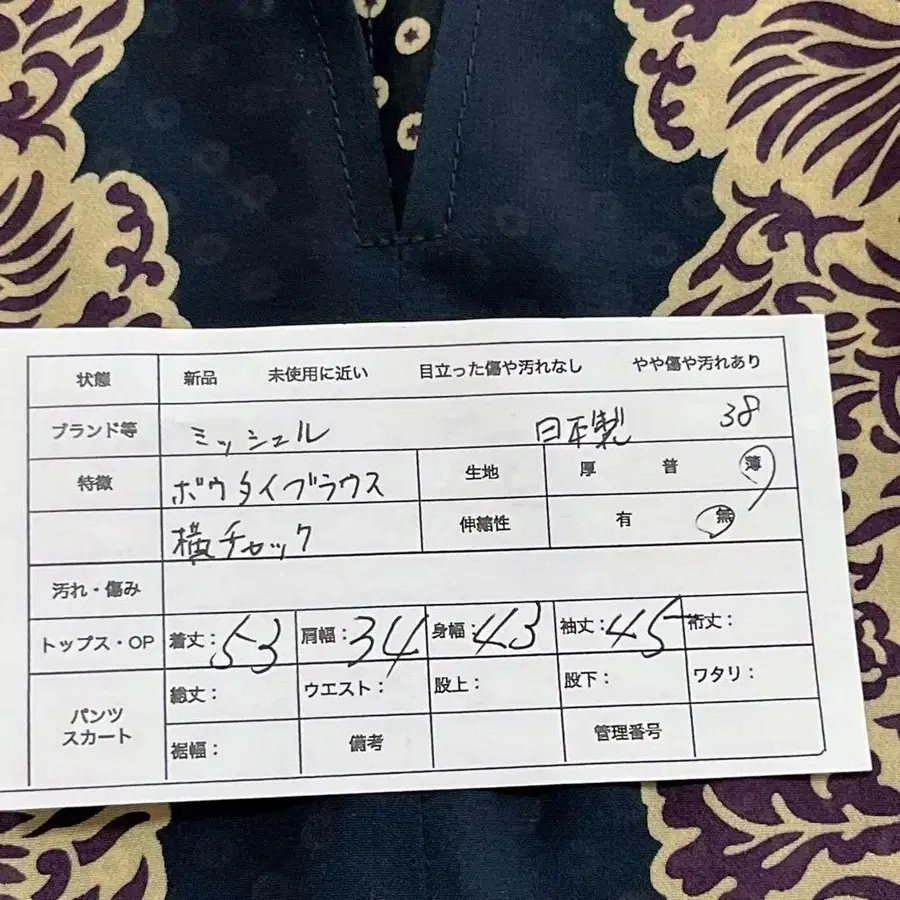 状態 新品 未使用に近い 目立った傷や汚れなし やや傷や汚れあり
ブランド等 ミッシェル 日本製 38
特徴 ボウタイブラウス 生地 厚 普 薄
横チャック 伸縮性 有 無
汚れ・傷み
トップス・OP 着丈：53 肩幅：34 身幅：43 袖丈：45 裄丈：
パンツ スカート 総丈： ウエスト： 股上： 股下： ワタリ：
裾幅： 備考 管理番号